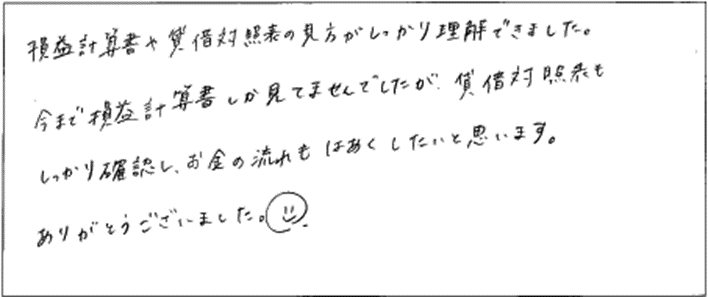 損益計算書や貸借対照表の見方がしっかり理解できました。
今まで損益計算書しか見てませんでしたが、貸借対照表も
しっかり確認し、お金の流れもはあくしたいと思います。
ありがとうございました。